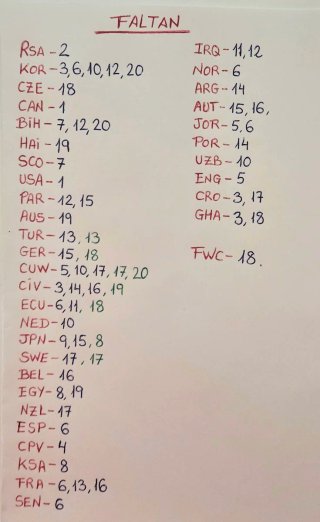 FALTAN
RSA - 2
KOR - 3,6,10,12,20
CZE - 18
CAN - 1
BiH - 7,12,20
HAi - 19
SCO - 7
USA - 1
PAR - 12,15
AUS - 19
TUR - 13,13
GER - 15,18
CUW - 5,10,17,17,20
CiV - 3,14,16,19
ECU - 6,11,18
NED - 10
JPN - 9,15,8
SWE - 17,17
BEL - 16
EGY - 8,19
NZL - 17
ESP - 6
CPV - 4
KSA - 8
FRA - 6,13,16
SEN - 6
IRQ - 11,12
NOR - 6
ARG - 14
AUT - 15,16,
JOR - 5,6
POR - 14
UZB - 10
ENG - 5
CRO - 3,17
GHA - 3,18
FWC - 18.